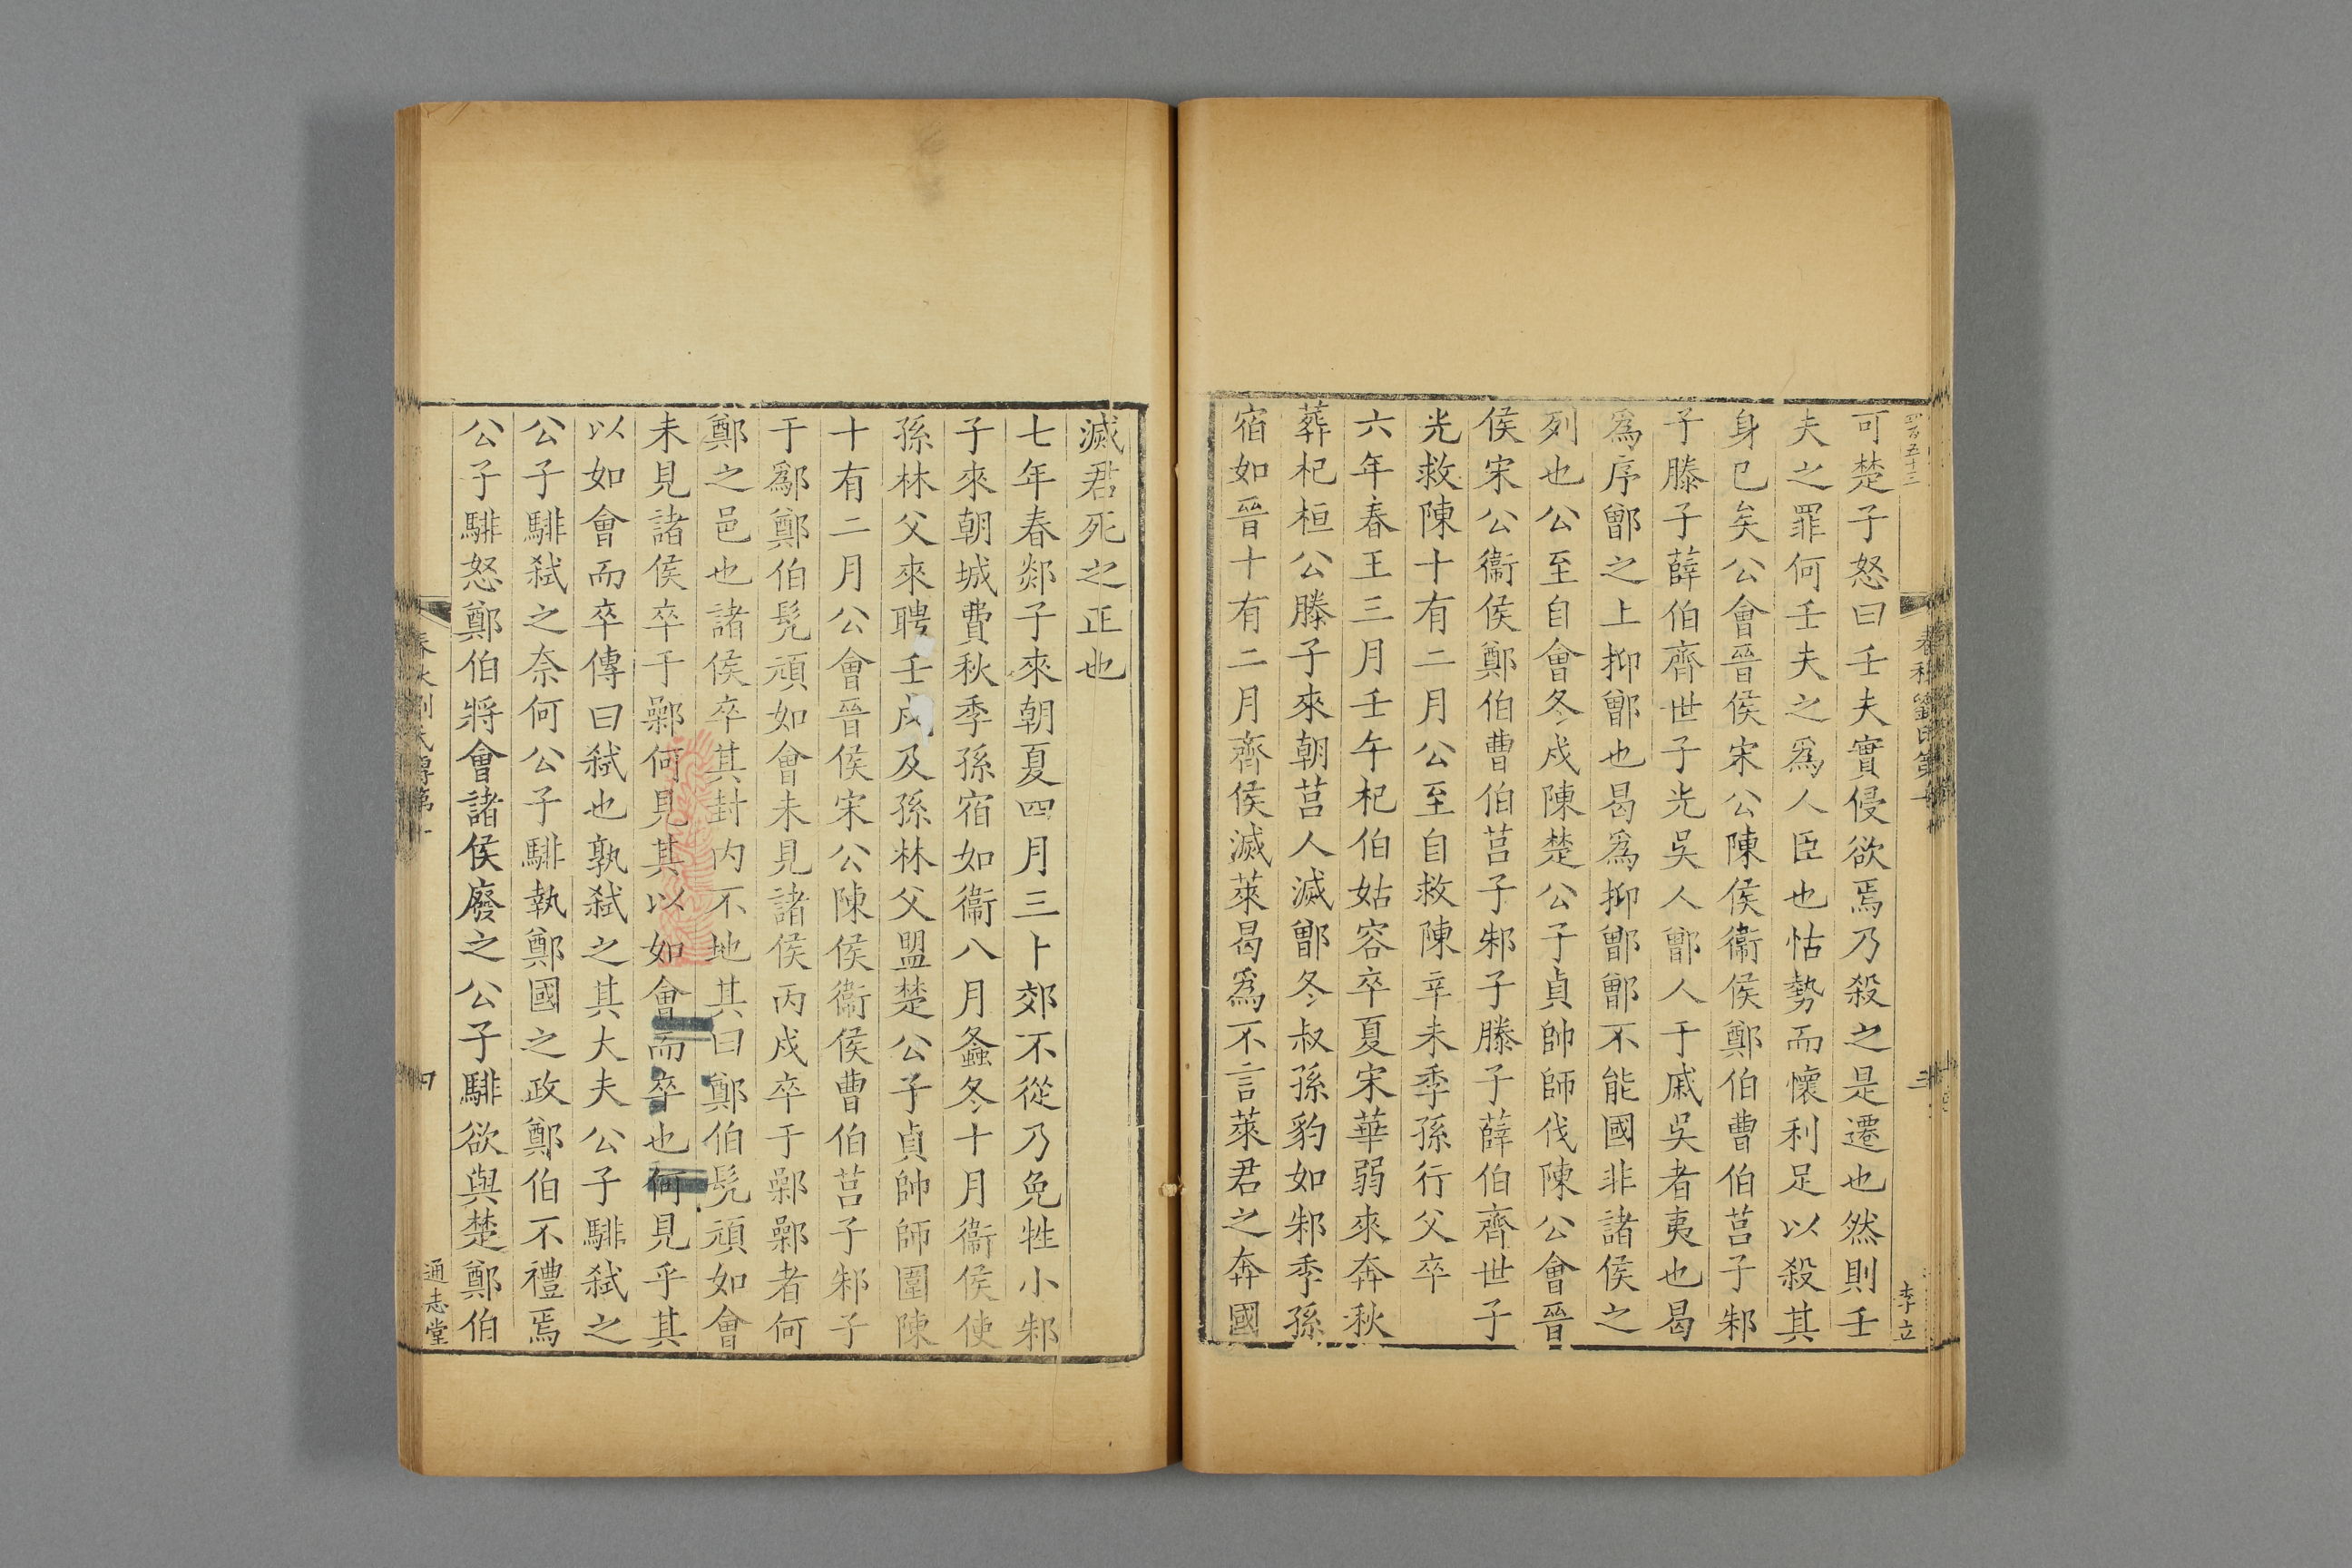 可楚子怒曰壬夫實侵欲焉乃殺之是遷也然則壬
夫之罪何壬夫之爲人臣也怙勢而懷利足以殺其
身已矣公會晉侯宋公陳侯衞侯鄭伯曹伯莒子邾
子滕子薛伯齊世子光吳人鄫人于戚吳者夷也曷
爲序鄫之上抑鄫也曷爲抑鄫鄫不能國非諸侯之
列也公至自會冬戍陳楚公子貞帥師伐陳公會晉
侯宋公衞侯鄭伯曹伯莒子邾子滕子薛伯齊世子
光救陳十有二月公至自救陳辛未季孫行父卒
六年春王三月壬午杞伯姑容卒夏宋華弱來奔秋
葬杞桓公滕子來朝莒人滅鄫冬叔孫豹如邾季孫
宿如晉十有二月齊侯滅萊曷爲不言萊君之奔國
李立
滅君死之正也
七年春郯子來朝夏四月三卜郊不從乃免牲小邾
子來朝城費秋季孫宿如衞八月螽冬十月衞侯使
孫林父來聘壬戌及孫林父盟楚公子貞帥師圍陳
十有二月公會晉侯宋公陳侯衞侯曹伯莒子邾子
于鄬鄭伯髠頑如會未見諸侯丙戌卒于鄵鄵者何
鄭之邑也諸侯卒其封內不地其曰鄭伯髠頑如會
未見諸侯卒于鄵何見其以如會而卒也何見乎其
以如會而卒傳曰弑也孰弑之其大夫公子騑弑之
公子騑弑之奈何公子騑執鄭國之政鄭伯不禮焉
公子騑怒鄭伯將會諸侯廢之公子騑欲與楚鄭伯
通志堂